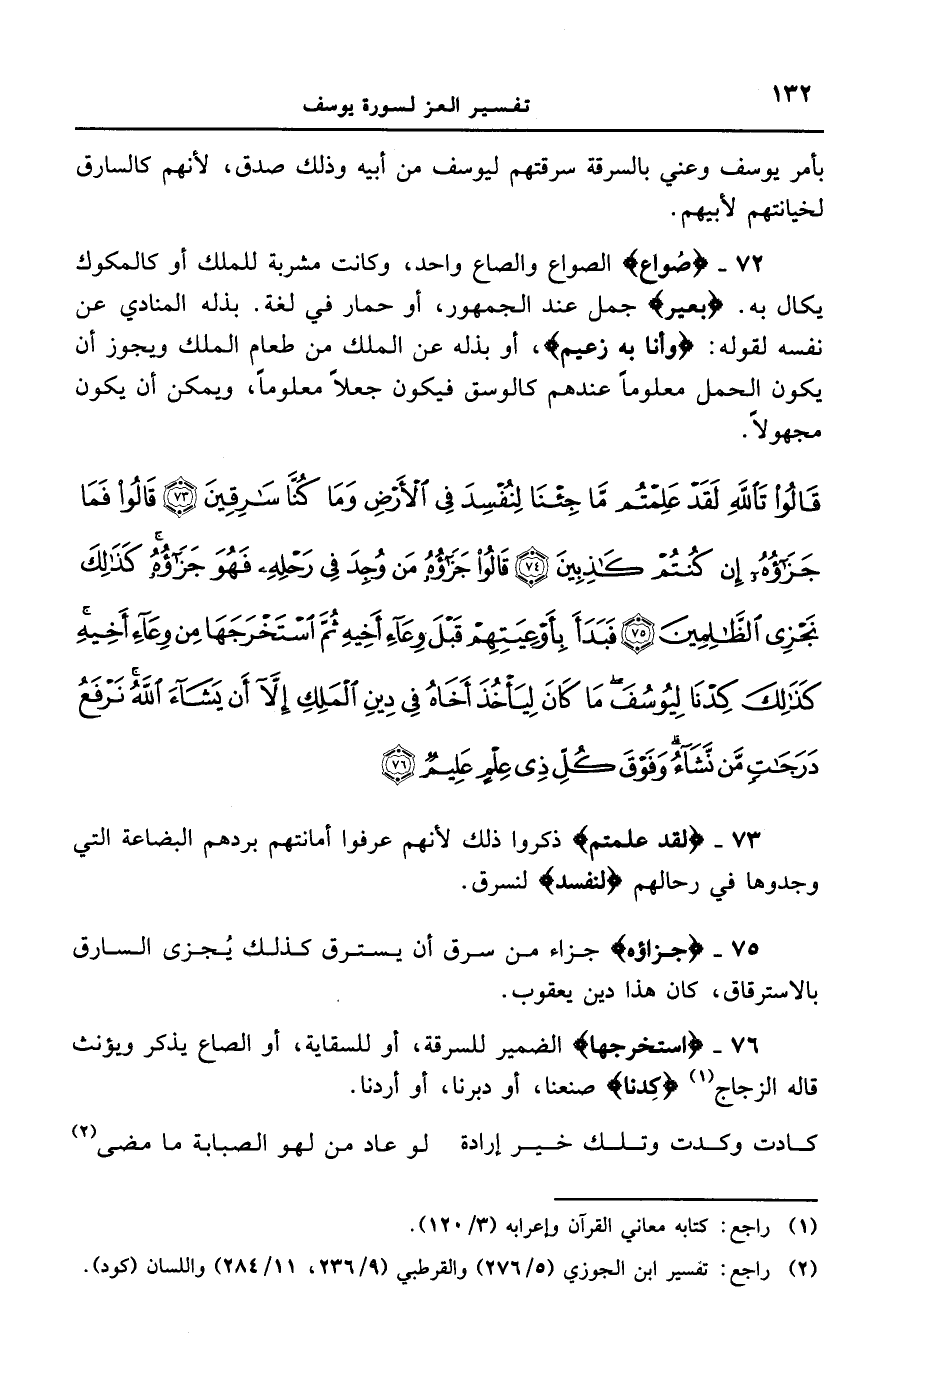 ١٣٢
تفسير العز لسورة يوسف
بأمر يوسف وعني بالسرقة سرقتهم ليوسف من أبيه وذلك صدق، لأنهم كالسارق
لخيانتهم لأبيهم.
٧٢ ـ ﴿صُواع﴾ الصواع والصاع واحد، وكانت مشربة للملك أو كالمكوك
يكال به. ﴿بعير﴾ جمل عند الجمهور، أو حمار في لغة. بذله المنادي عن
نفسه لقوله: ﴿وأنا به زعيم﴾، أو بذله عن الملك من طعام الملك ويجوز أن
يكون الحمل معلوماً عندهم كالوسق فيكون جعلاً معلوماً، ويمكن أن يكون
مجهولاً.
قَالُوا۟ تَٱللَّهِ لَقَدْ عَلِمْتُم مَّا جِئْنَا لِنُفْسِدَ فِى ٱلْأَرْضِ وَمَا كُنَّا سَـٰرِقِينَ ﴿٧٣﴾ قَالُوا۟ فَمَا
جَزَٰٓؤُهُۥٓ إِن كُنتُمْ كَـٰذِبِينَ ﴿٧٤﴾ قَالُوا۟ جَزَٰٓؤُهُۥ مَن وُجِدَ فِى رَحْلِهِۦ فَهُوَ جَزَٰٓؤُهُۥ ۚ كَذَٰلِكَ
نَجْزِى ٱلظَّـٰلِمِينَ ﴿٧٥﴾ فَبَدَأَ بِأَوْعِيَتِهِمْ قَبْلَ وِعَآءِ أَخِيهِ ثُمَّ ٱسْتَخْرَجَهَا مِن وِعَآءِ أَخِيهِ ۚ
كَذَٰلِكَ كِدْنَا لِيُوسُفَ ۖ مَا كَانَ لِيَأْخُذَ أَخَاهُ فِى دِينِ ٱلْمَلِكِ إِلَّآ أَن يَشَآءَ ٱللَّهُ ۚ نَرْفَعُ
دَرَجَـٰتٍ مَّن نَّشَآءُ ۗ وَفَوْقَ كُلِّ ذِى عِلْمٍ عَلِيمٌ ﴿٧٦﴾
٧٣ ـ ﴿لقد علمتم﴾ ذكروا ذلك لأنهم عرفوا أمانتهم بردهم البضاعة التي
وجدوها في رحالهم ﴿لنفسد﴾ لنسرق.
٧٥ ـ ﴿جزاؤه﴾ جزاء من سرق أن يسترق كذلك يُجزى السارق
بالاسترقاق، كان هذا دين يعقوب.
٧٦ ـ ﴿استخرجها﴾ الضمير للسرقة، أو للسقاية، أو الصاع يذكر ويؤنث
قاله الزجاج(١) ﴿كِدنا﴾ صنعنا، أو دبرنا، أو أردنا.
كادت وكدت وتلك خير إرادة لو عاد من لهو الصبابة ما مضى(٢)
(١) راجع: كتابه معاني القرآن وإعرابه (٣/ ١٢٠).
(٢) راجع: تفسير ابن الجوزي (٢٧٦/٥) والقرطبي (٢٣٦/٩، ٢٨٤/١١) واللسان (كود).